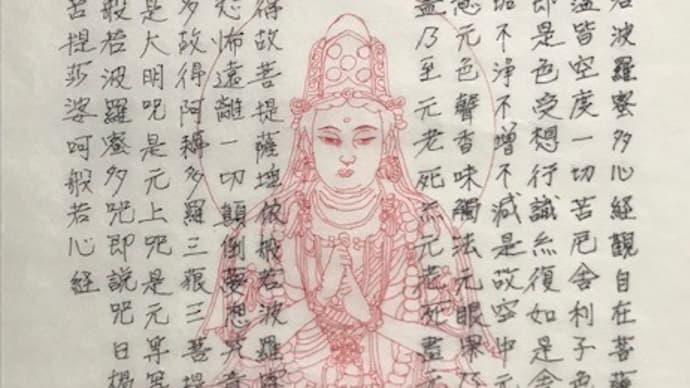 若波羅蜜多心経觀自在菩薩
蘊皆空度一切苦厄舍利子色
即是色受想行識亦復如是舍
垢不淨不增不減是故空中元
意元色聲香味觸法元眼界乃
盡乃至元老死亦元老死盡
得故菩提薩埵依般若波羅蜜
恐怖遠離一切顛倒夢想究竟
多故得阿耨多羅三藐三菩提
是大明呪是元上呪是元等等
般若波羅蜜多呪即説呪曰揭
菩提莎婆呵般若心経